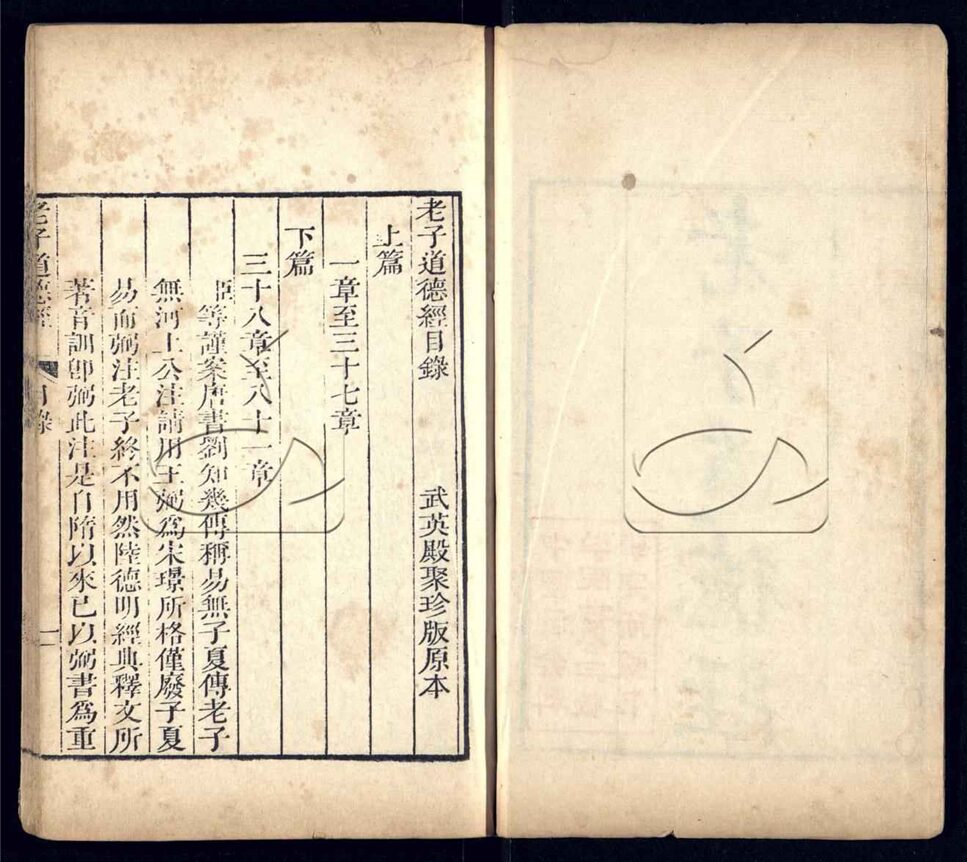 老子道德經目錄 武英殿聚珍版原本
上篇
一章至三十七章
下篇
三十八章至八十一章
臣等謹案唐書劉知幾傳稱易無子夏傳老子
無河上公注請用王弼為宋璟所格僅廢子夏
易而弼注老子終不用然陸德明經典釋文所
著音訓卽弼此注是自隋以來已以弼書為重
老子道德經 目錄 一